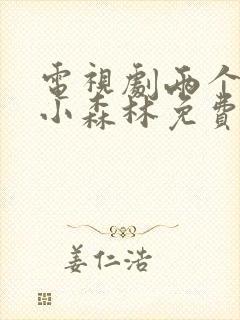 電視劇兩个
小森林免費
姜仁浩